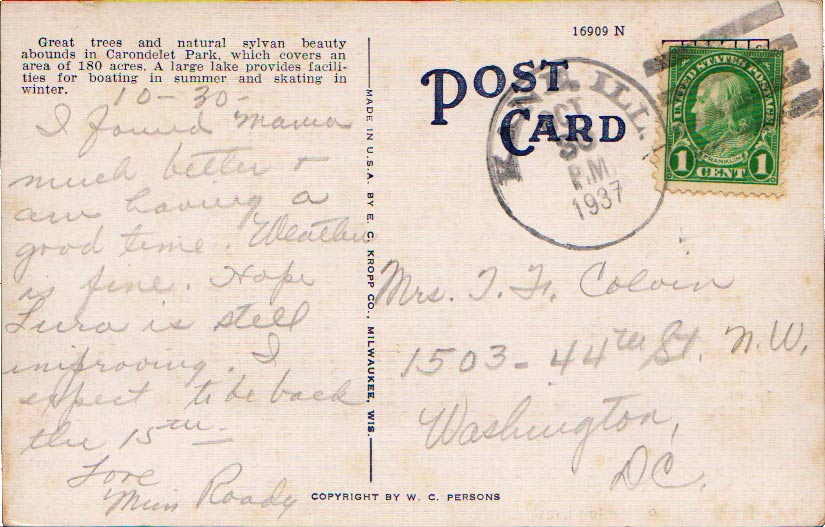 Great trees and natural sylvan beauty
abounds in Carondelet Park, which covers an
area of 180 acres. A large lake provides facili-
ties for boating in summer and skating in
winter.
10-30-
I found Mama
much better &
am having a
good time. Weather
is fine. Hope
Lura is still
improving. I
expect to be back
the 15th-
Love
Miss Roady
MADE IN U.S.A. BY E. C. KROPP CO., MILWAUKEE, WIS.
16909 N
POST
CARD
ILL.
OCT
30
P.M.
1937
UNITED STATES POSTAGE
FRANKLIN
1 CENT 1
Mrs. T. F. Colvin
1503-44th St. N.W.
Washington,
D.C.
COPYRIGHT BY W. C. PERSONS